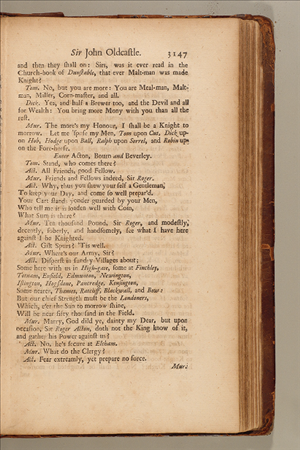 Sir John Oldcastle. 3147
and then they shall on: Sirs, was it ever read in the
Church-book of Dunstable, that ever Malt-man was made
Knight?
Tom. No, but you are more: You are Meal-man, Malt-
man, Miller, Corn-master, and all.
Dick. Yes, and half a Brewer too, and the Devil and all
for Wealth: You bring more Mony with you than all the
rest.
Mur. The more's my Honour, I shall be a Knight to
morrow. Let me 'spose my Men, Tom upon Cut, Dick up-
on Hob, Hodge upon Ball, Ralph upon Sorrel, and Robin up-
on the Fore-horse.
Enter Acton, Bourn and Beverley.
Tom. Stand, who comes there?
Act. All Friends, good Fellow.
Mur. Friends and Fellows indeed, Sir Roger.
Act. Why, thus you show your self a Gentleman,
To keep your Day, and come so well prepar'd.
Your Cart stands yonder guarded by your Men,
Who tell me it is loaden well with Coin,
What Sum is there?
Mur. Ten thousand Pound, Sir Roger, and modestly,
decently, soberly, and handsomely, see what I have here
against I be Knighted.
Act. Gilt Spurs? 'Tis well.
Mur. Where's our Army, Sir?
Act. Disperst in sundry Villages about;
Some here with us in High-gate, some at Finchley,
Totnam, Enfield, Edmunton, Newington,
Islington, Hogsdone, Pancredge, Kenzington,
Some nearer, Thames, Ratcliff, Blackwall, and Bow:
But our chief Strength must be the Londoners,
Which, e'er the Sun to morrow shine,
Will be near fifty thousand in the Field.
Mur. Marry, God dild ye, dainty my Dear, but upon
occasion, Sir Roger Acton, doth not the King know of it,
and gather his Power against us?
Act. No, he's secure at Eltham.
Mur. What do the Clergy?
Act. Fear extreamly, yet prepare no force.
Mur.